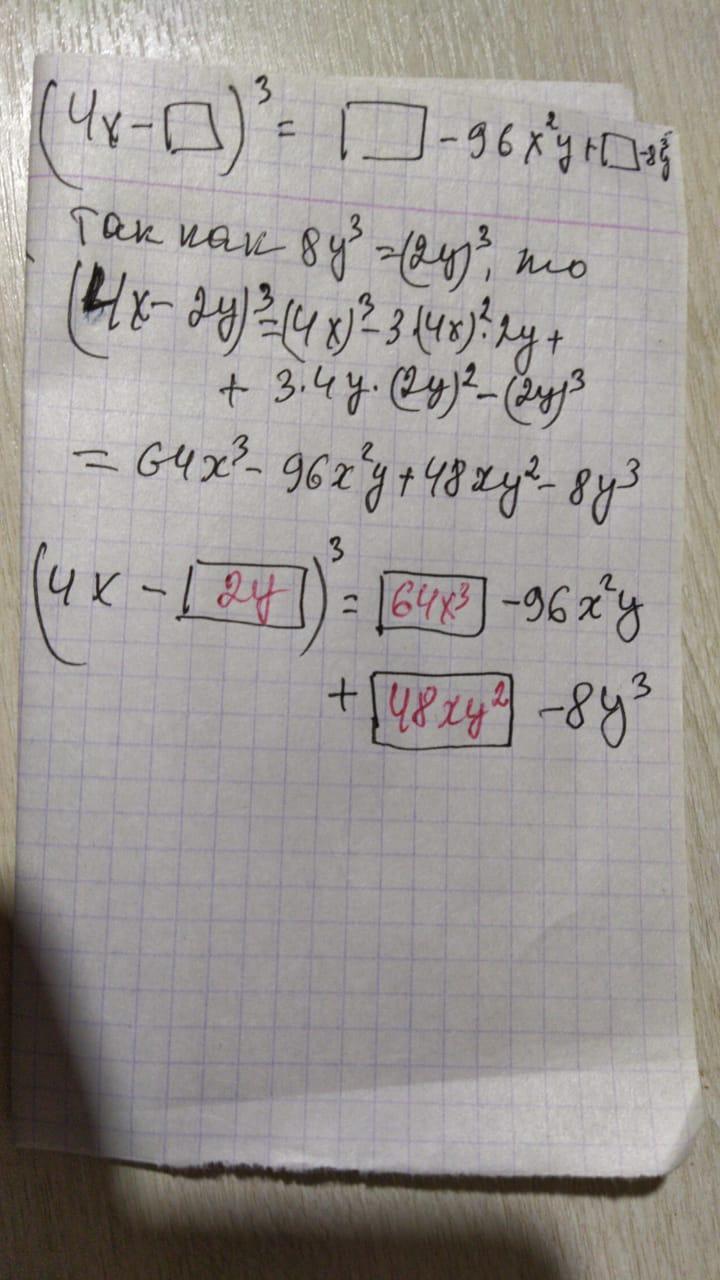 (4x - □)³ = □ - 96x²y + □ - 8y³
Так как 8y³ = (2y)³, то
(4x - 2y)³ = (4x)³ - 3·(4x)²·2y +
+ 3·4y·(2y)² - (2y)³
= 64x³ - 96x²y + 48xy² - 8y³
(4x - 2y)³ = 64x³ - 96x²y
+ 48xy² - 8y³